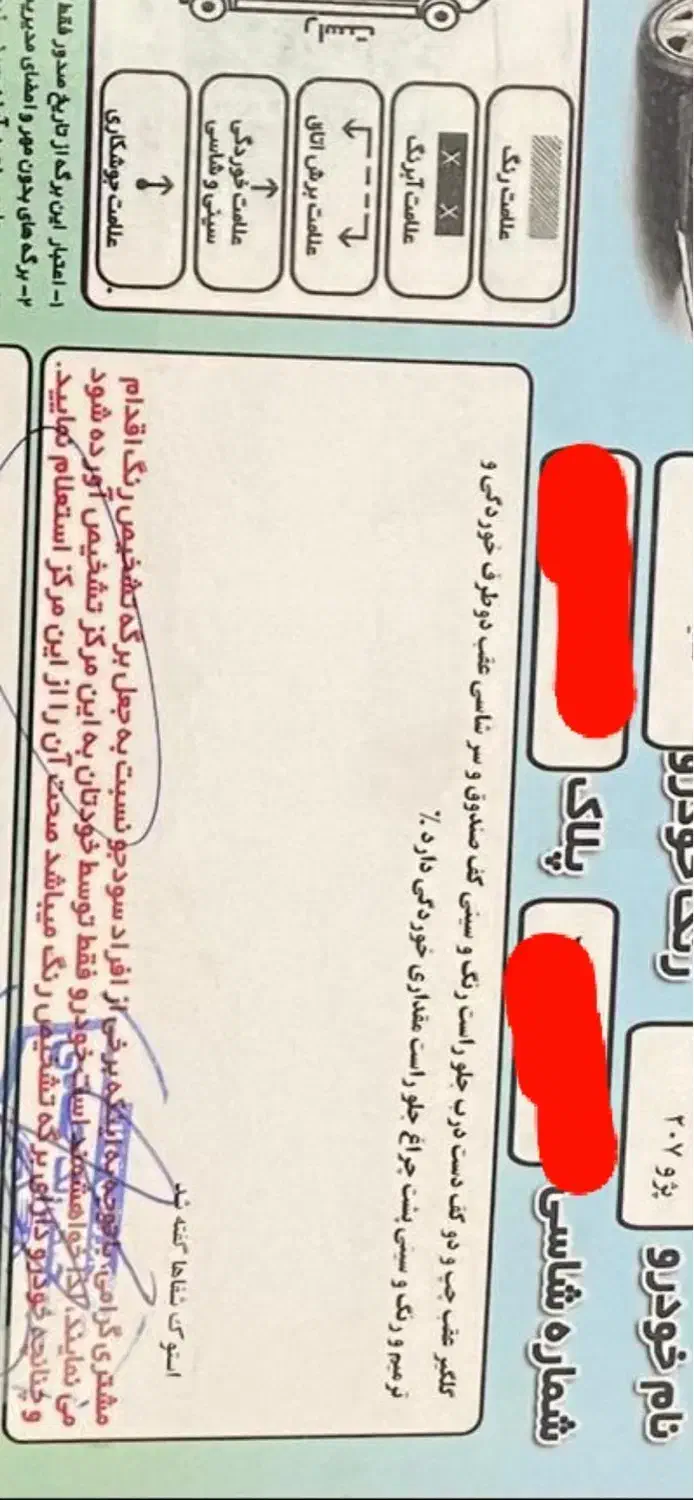 نام خودرو پژو ۲۰۷ رنگ خودرو
شماره شاسی پلاک
گلگیر عقب چپ و دو کف دست درب جلو راست رنگ و سینی کف صندوق و سر شاسی عقب دوطرف خوردگی و
ترمیم و رنگ و سینی پشت چراغ جلو راست مقداری خوردگی دارد %
استوک شفاها گفته شد
مشتری گرامی، باتوجه به اینکه برخی از افراد سودجو نسبت به جعل برگه تشخیص رنگ اقدام
می نمایند، لذا خواهشمند است خودرو فقط توسط خودتان به این مرکز تشخیص آورده شود
و چنانچه خودرو دارای برگه تشخیص رنگ میباشد صحت آن را از این مرکز استعلام نمایید.
علامت رنگ
X X
علامت آبرنگ
علامت برش اتاق
علامت خوردگی
سینی و شاسی
علامت جوشکاری
۱- اعتبار این برگه از تاریخ صدور فقط
۲- برگه های بدون مهر و امضای